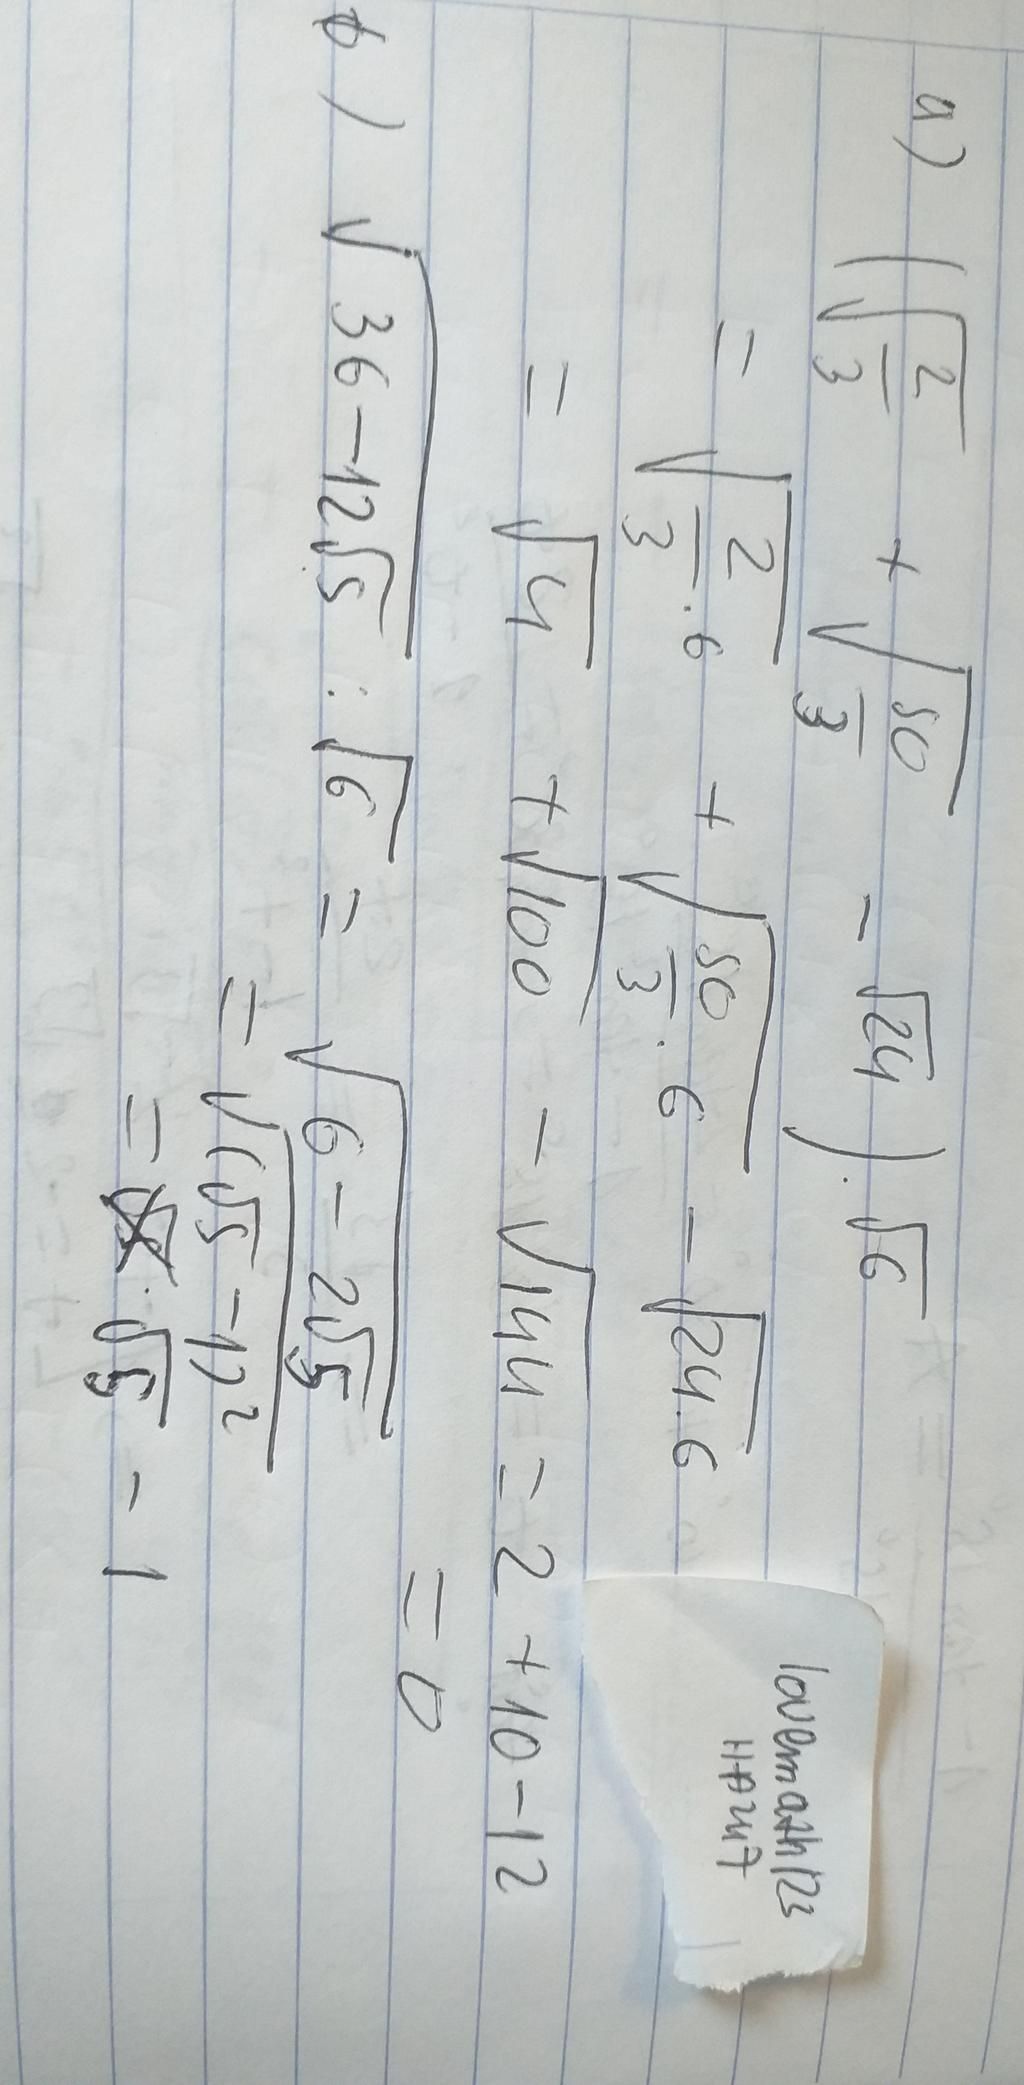 a) (√(2/3) + √(50/3) - √24) . √6
= √(2/3 . 6) + √(50/3 . 6) - √(24.6)
= √4 + √100 - √144 = 2 + 10 - 12
= 0
b) √(36 - 12√5) : √6 = √(6 - 2√5)
= √((√5 - 1)²)
= √5 - 1
lovemath123